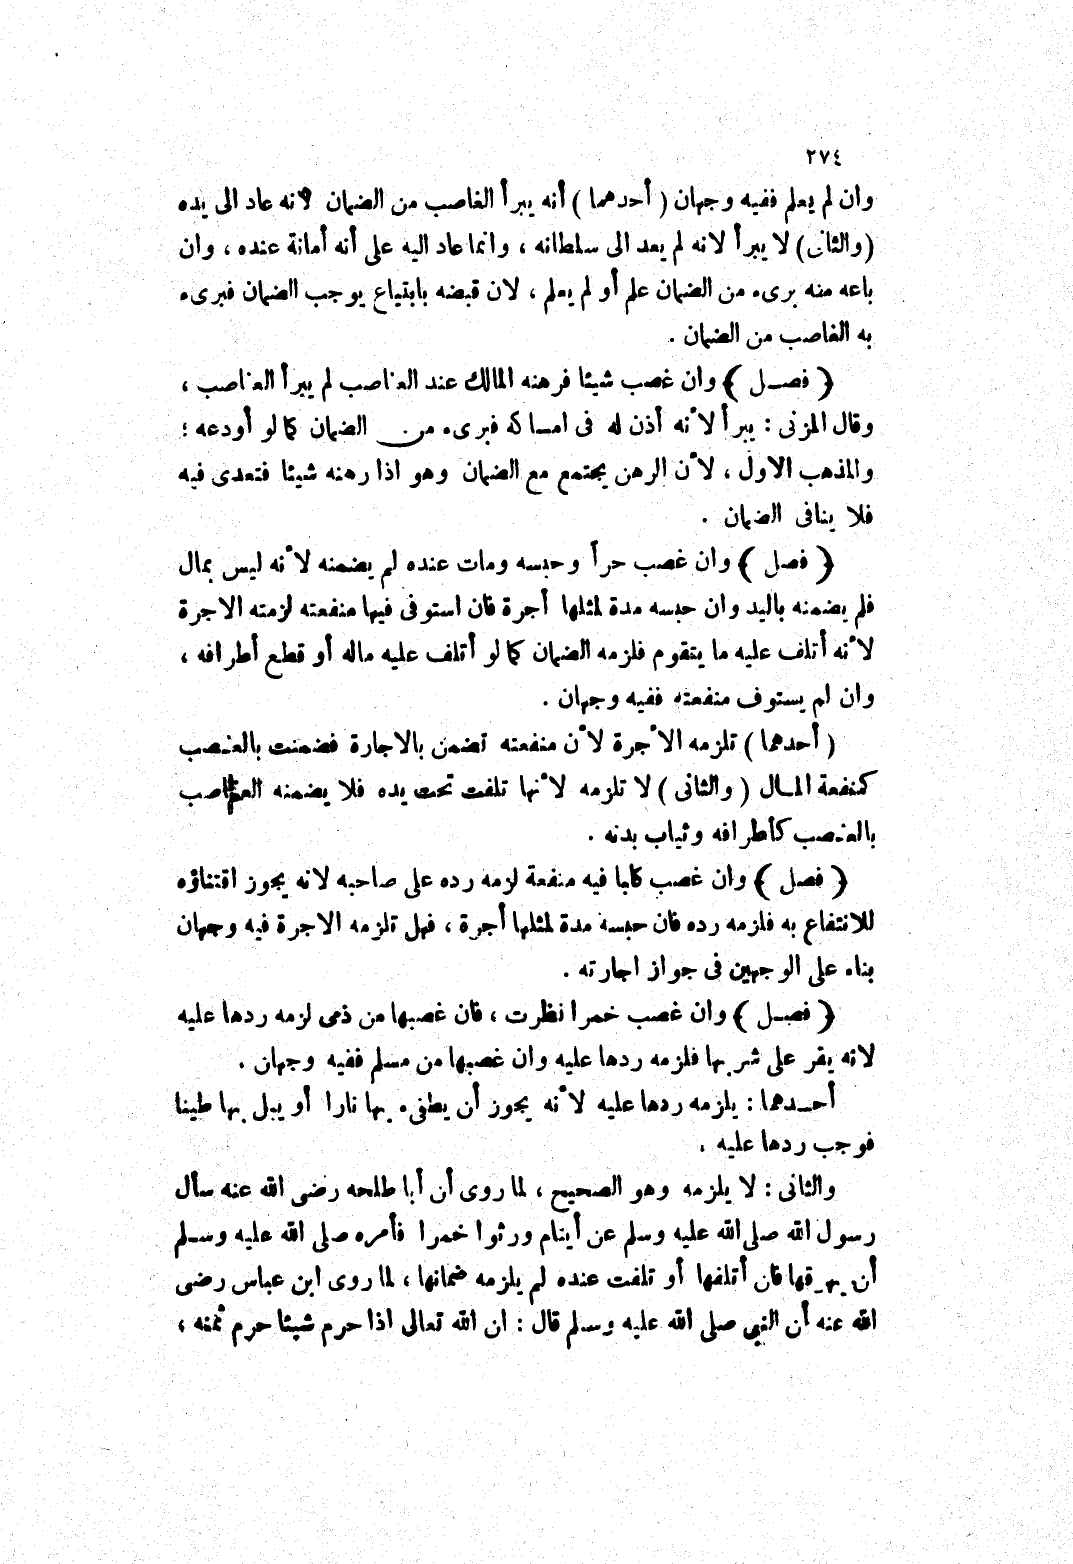 ٢٧٤
وان لم يعلم ففيه وجهان ( أحدهما ) أنه يبرأ الغاصب من الضمان لأنه عاد الى يده
(والثانى) لا يبرأ لانه لم يعد الى سلطانه ، وانما عاد اليه على أنه أمانة عنده ، وان
باعه منه برىء من الضمان علم أو لم يعلم ، لان قبضه بابتياع يوجب الضمان فبرىء
به الغاصب من الضمان .
﴿ فصــل ﴾ وان غصب شيئا فرهنه المالك عند الغاصب لم يبرأ الغاصب ،
وقال المزنى : يبرأ لأنه أذن له فى امساكه فبرىء من الضمان كما لو أودعه ؛
والمذهب الاول ، لأن الرهن يجتمع مع الضمان وهو اذا رهنه شيئا فتعدى فيه
فلا ينافى الضمان .
﴿ فصل ﴾ وان غصب حراً وحبسه ومات عنده لم يضمنه لأنه ليس بمال
فلم يضمنه باليد وان حبسه مدة لمثلها أجرة فان استوفى فيها منفعته لزمته الاجرة
لأنه أتلف عليه ما يتقوم فلزمه الضمان كما لو أتلف عليه ماله أو قطع أطرافه ،
وان لم يستوف منفعته ففيه وجهان .
( أحدهما ) تلزمه الأجرة لأن منفعته تضمن بالاجارة فضمنت بالغصب
كمنفعة المـال ( والثانى ) لا تلزمه لأنها تلفت تحت يده فلا يضمنه الغاصب
بالغصب كأطرافه وثياب بدنه .
﴿ فصل ﴾ وان غصب كلبا فيه منفعة لزمه رده على صاحبه لانه يجوز اقتناؤه
للانتفاع به فلزمه رده فان حبسه مدة لمثلها أجرة ، فهل تلزمه الاجرة فيه وجهان
بناء على الوجهين فى جواز اجارته .
﴿ فصـل ﴾ وان غصب خمرا نظرت ، فان غصبها من ذمى لزمه ردها عليه
لانه يقر على شربها فلزمه ردها عليه وان غصبها من مسلم ففيه وجهان .
أحــدهما : يلزمه ردها عليه لأنه يجوز أن يطفىء بها نارا أو يبل بها طينا
فوجب ردها عليه .
والثانى : لا يلزمه وهو الصحيح ، لما روى أن أبا طلحه رضى الله عنه سأل
رسول الله صلى الله عليه وسلم عن أيتام ورثوا خمرا فأمره صلى الله عليه وسـلم
أن يهرقها فان أتلفها أو تلفت عنده لم يلزمه ضمانها ، لما روى ابن عباس رضى
الله عنه أن النبى صلى الله عليه وسـلم قال : ان الله تعالى اذا حرم شيئا حرم ثمنه ،